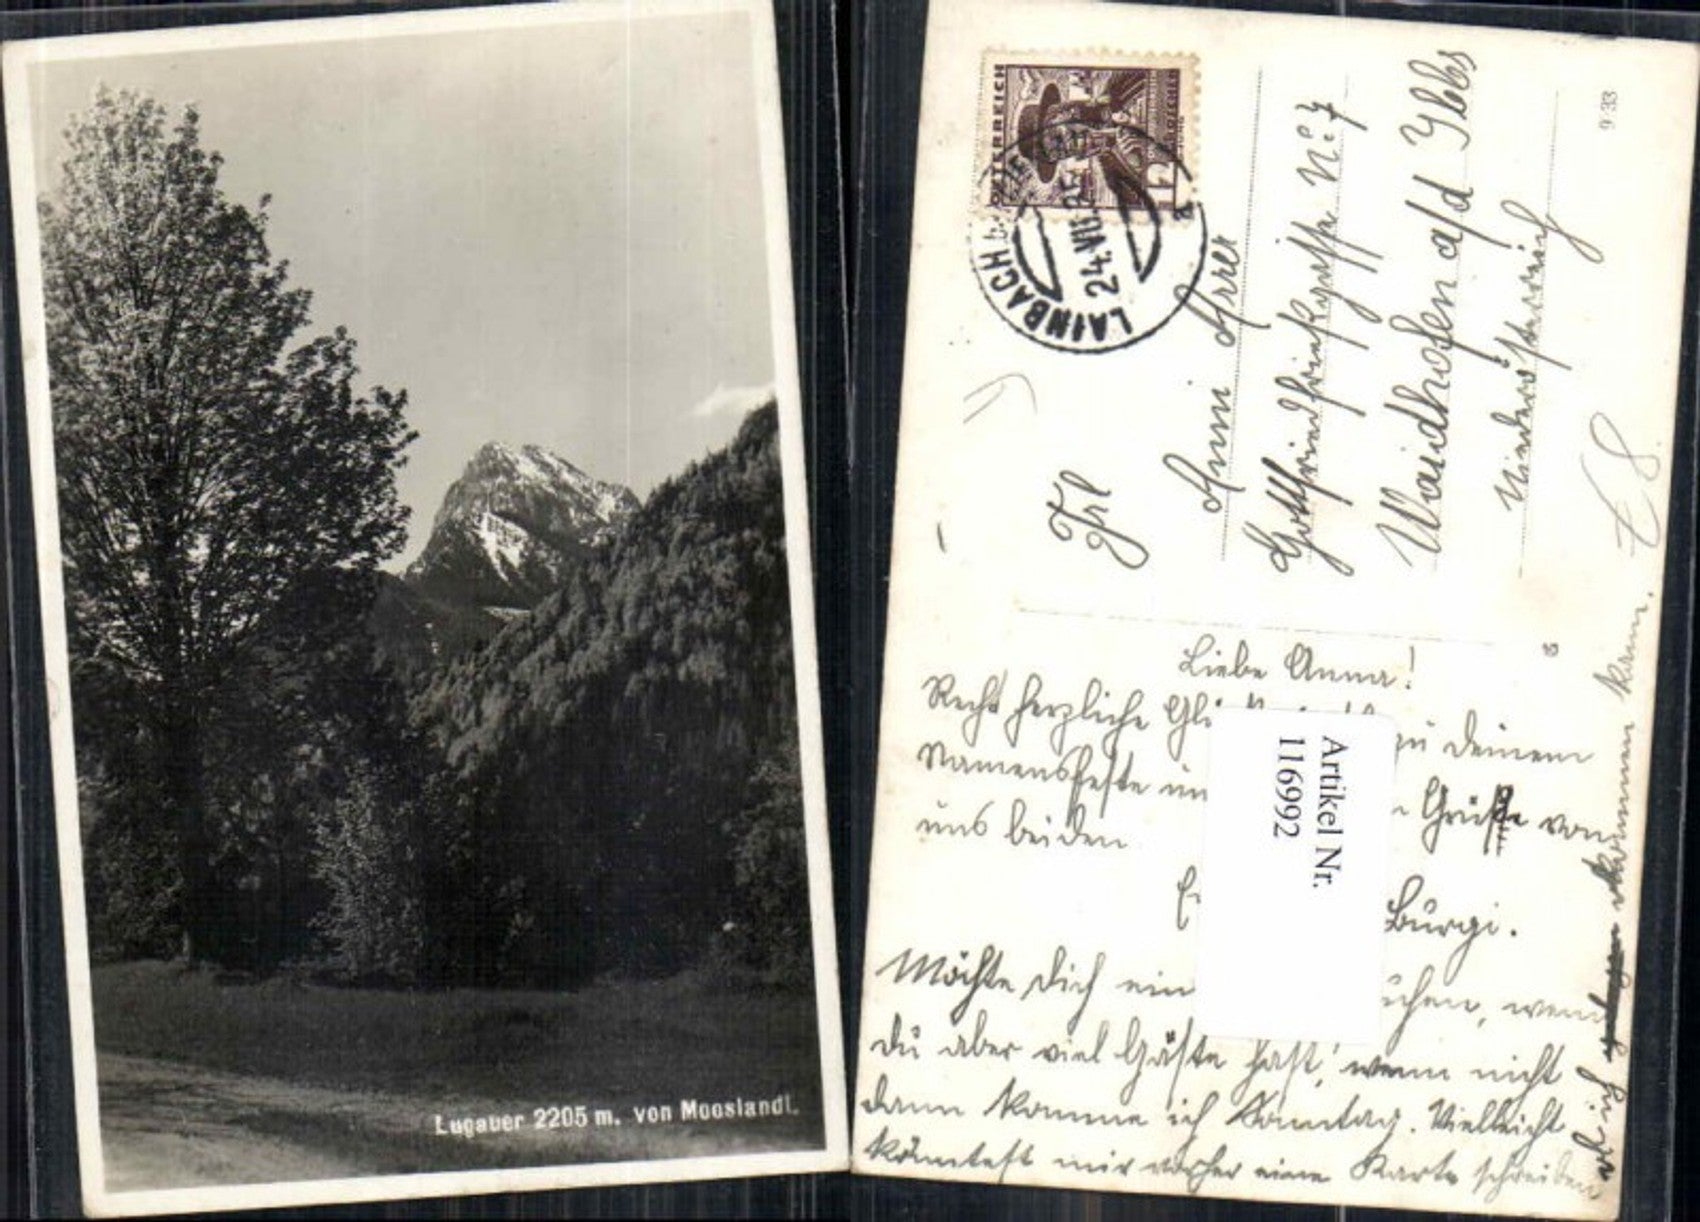 Lugauer 2205 m. von Mooslandl.
ÖSTERREICH
12
LAINBACH
24.VII.35
a
9 33
Frl
Anni
Gottfried Frießgasse Nº: 7
Waidhofen a/d Ybbs
Niederösterreich
€ 8
Liebe Anna!
Recht herzliche zu deinem
Namensfeste Grüße von
uns beiden
Burgi.
Möchte dich wenn
du aber viel Gäste hast, wenn nicht
dann komme ich Sonntag. Vielleicht
könntest mir vorher eine Karte schreiben
ob ich kommen kann.
Artikel Nr.
116992